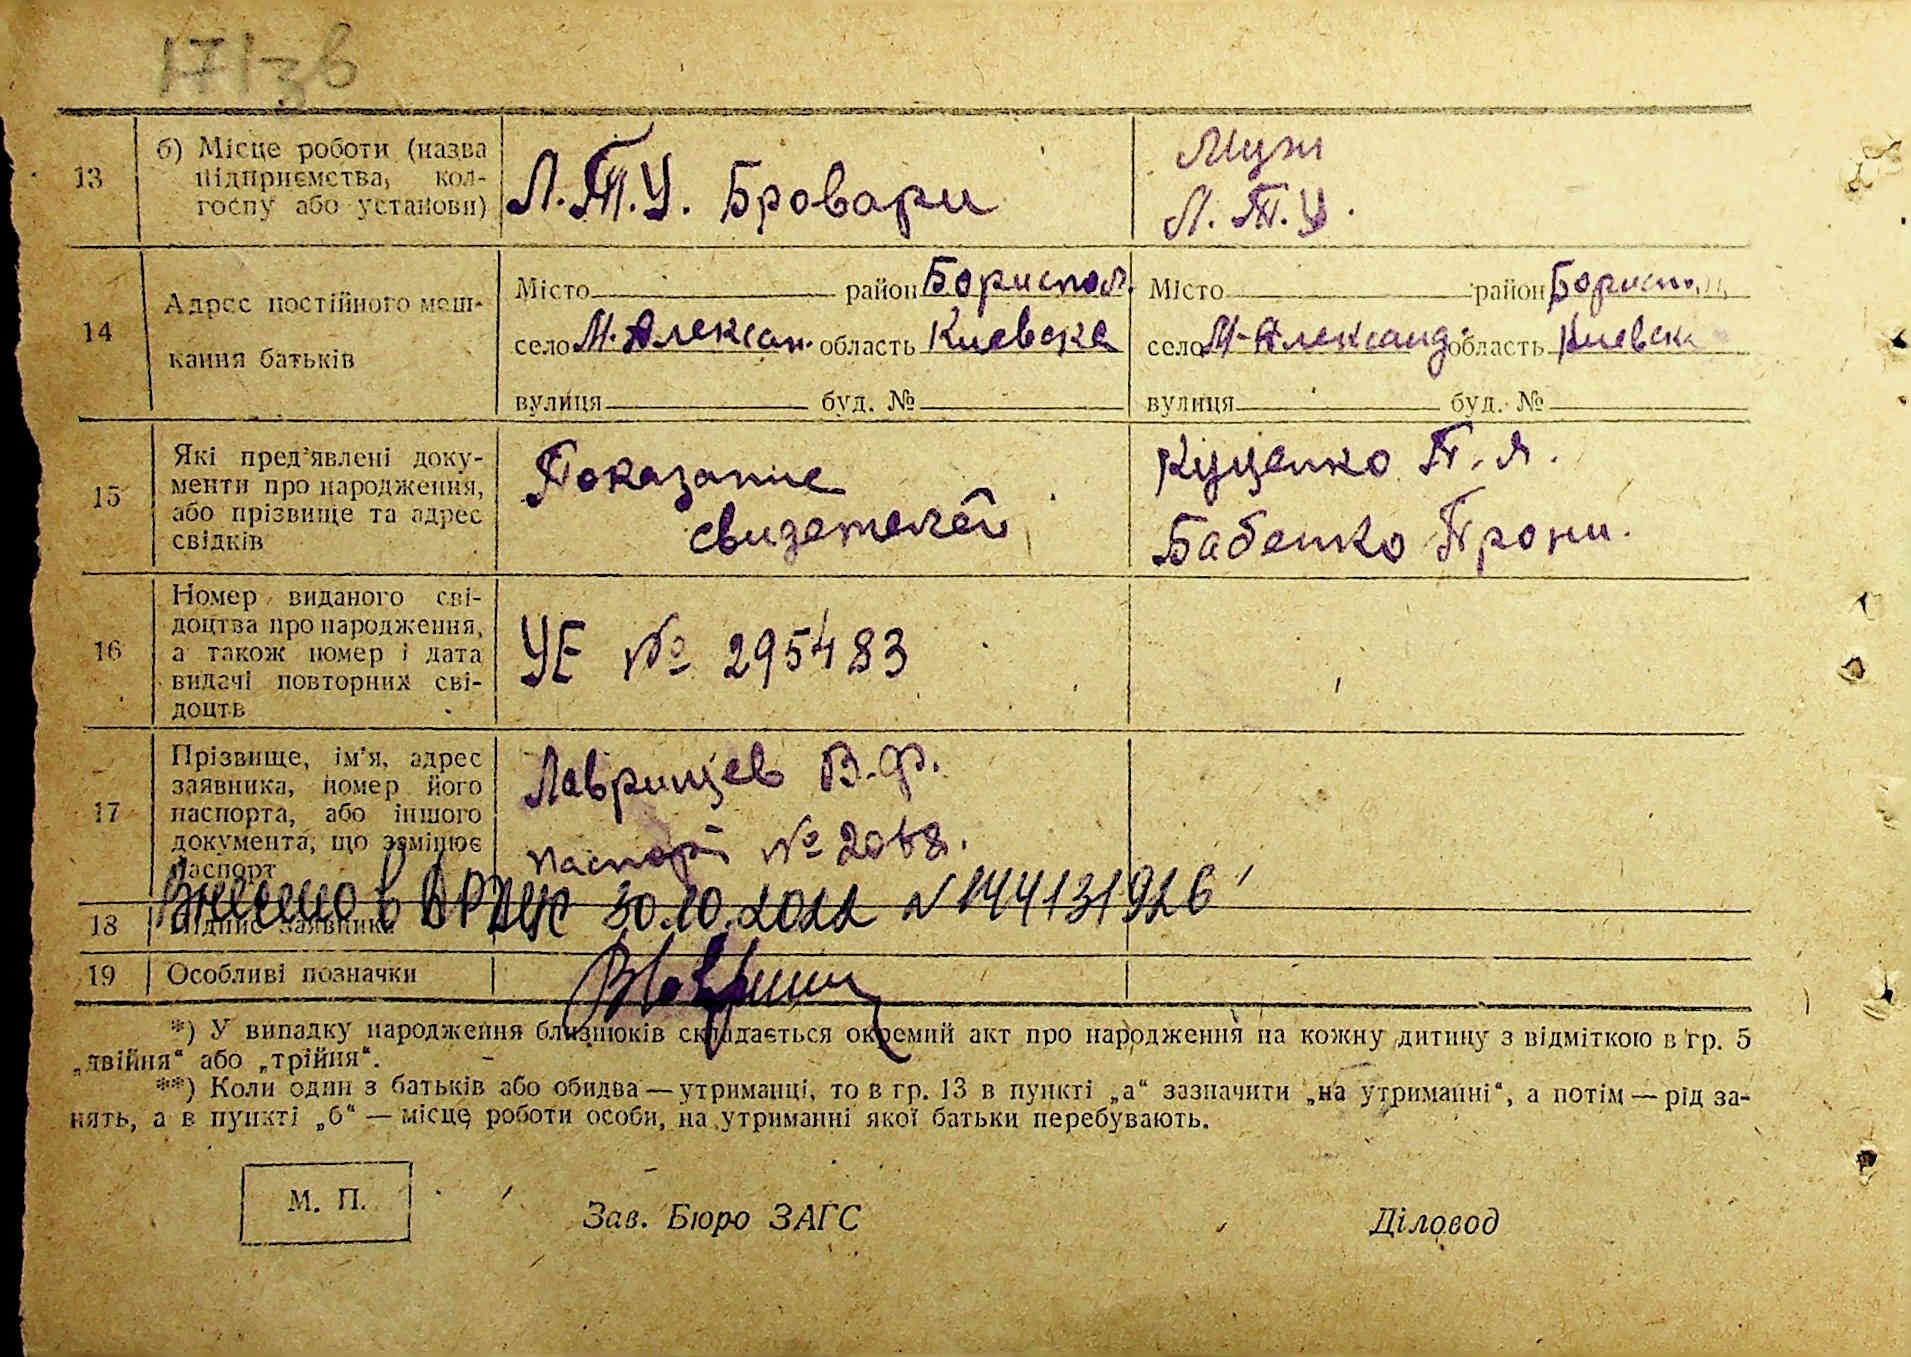 13
б) Місце роботи (назва
підприємства, кол-
госпу або установи)
Л.Т.У. Бровари
Муж
Л.Т.У.
14
Адрес постійного меш-
кання батьків
Місто район Бориспол.
село М. Алексан. область Киевска
вулиця буд. №
Місто район
село М-Александ. область Киевска
вулиця буд. №
15
Які пред'явлені доку-
менти про народження,
або прізвище та адрес
свідків
Показание
свидетелей
Куценко Т. Я.
Бабенко
16
Номер виданого сві-
доцтва про народження,
а також номер і дата
видачі повторних сві-
доцтв
УЕ № 295483
17
Прізвище, ім'я, адрес
заявника, номер його
паспорта, або іншого
документа, що замінює
паспорт
Лавринцев В.Ф.
паспорт №
Внесено в 30.10.2022 N 144131926
18
Підпис заявника
19
Особливі позначки
*) У випадку народження близнюків складається окремий акт про народження на кожну дитину з відміткою в гр. 5
„двійня“ або „трійня“.
**) Коли один з батьків або обидва — утриманці, то в гр. 13 в пункті „а“ зазначити „на утриманні“, а потім — рід за-
нять, а в пункті „б“ — місце роботи особи, на утриманні якої батьки перебувають.
М. П.
Зав. Бюро ЗАГС
Діловод